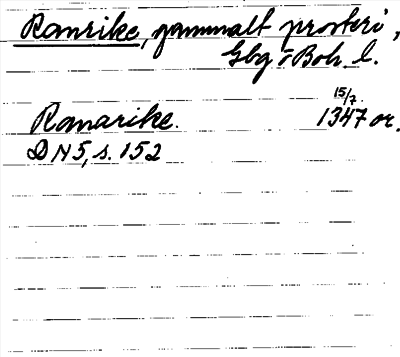 Ranrike, gammalt prosteri,
Gbg o Boh. l.
15/7
Ranarike. 1347 or.
DN 5, s. 152